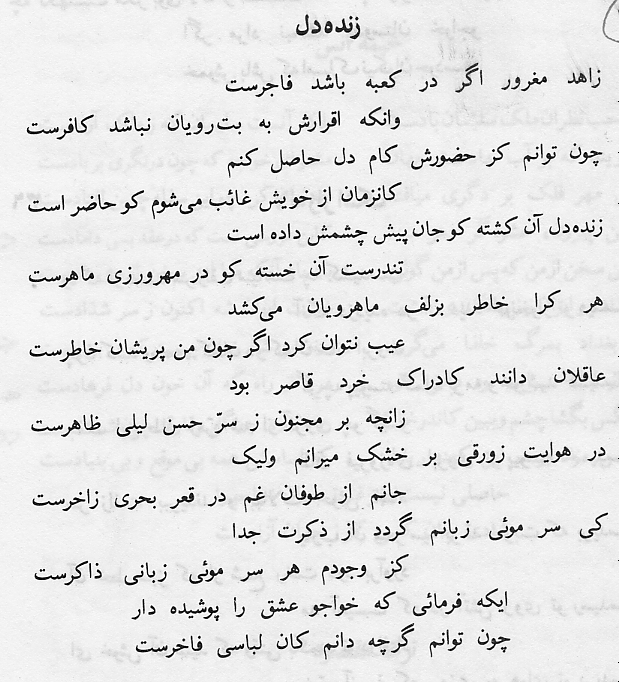 زنده‌دل
زاهد مغرور اگر در کعبه باشد فاجرست
وانکه اقرارش به بت‌رویان نباشد کافرست
چون توانم کز حضورش کام دل حاصل کنم
کانزمان از خویش غائب می‌شوم کو حاضر است
زنده‌دل آن کشته کو جان پیش چشمش داده است
تندرست آن خسته کو در مهرورزی ماهرست
هر کرا خاطر بزلف ماهرویان می‌کشد
عیب نتوان کرد اگر چون من پریشان خاطرست
عاقلان دانند کادراک خرد قاصر بود
زانچه بر مجنون ز سرّ حسن لیلی ظاهرست
در هوایت زورقی بر خشک میرانم ولیک
جانم از طوفان غم در قعر بحری زاخرست
کی سر موئی زبانم گردد از ذکرت جدا
کز وجودم هر سر موئی زبانی ذاکرست
ایکه فرمائی که خواجو عشق را پوشیده دار
چون توانم گرچه دانم کان لباسی فاخرست